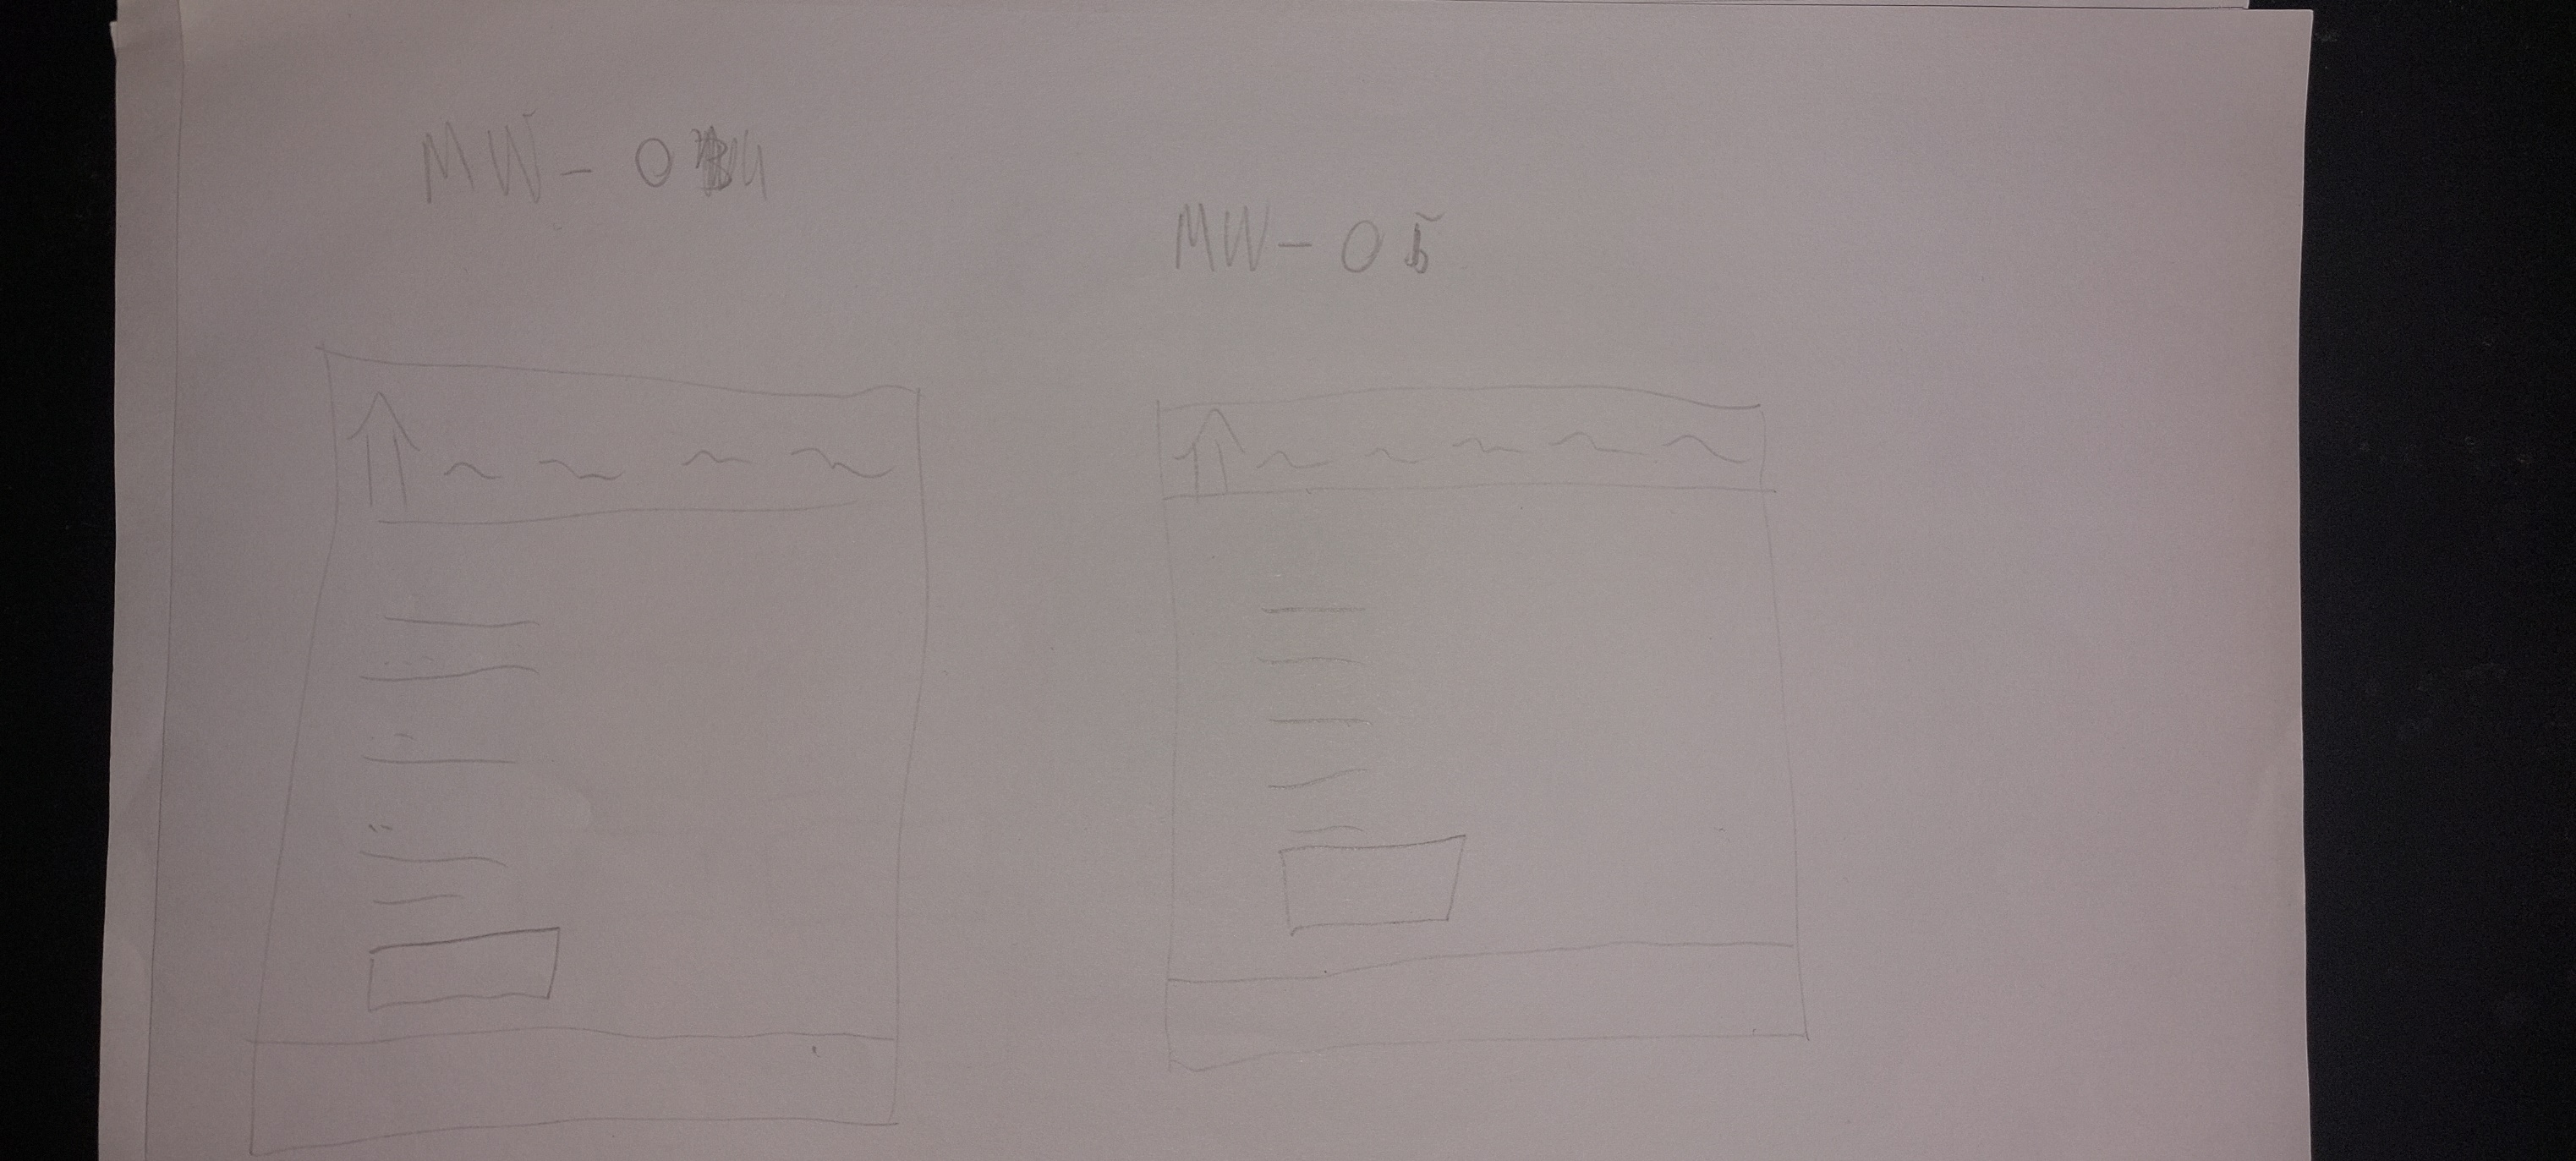 MW-04
MW-05